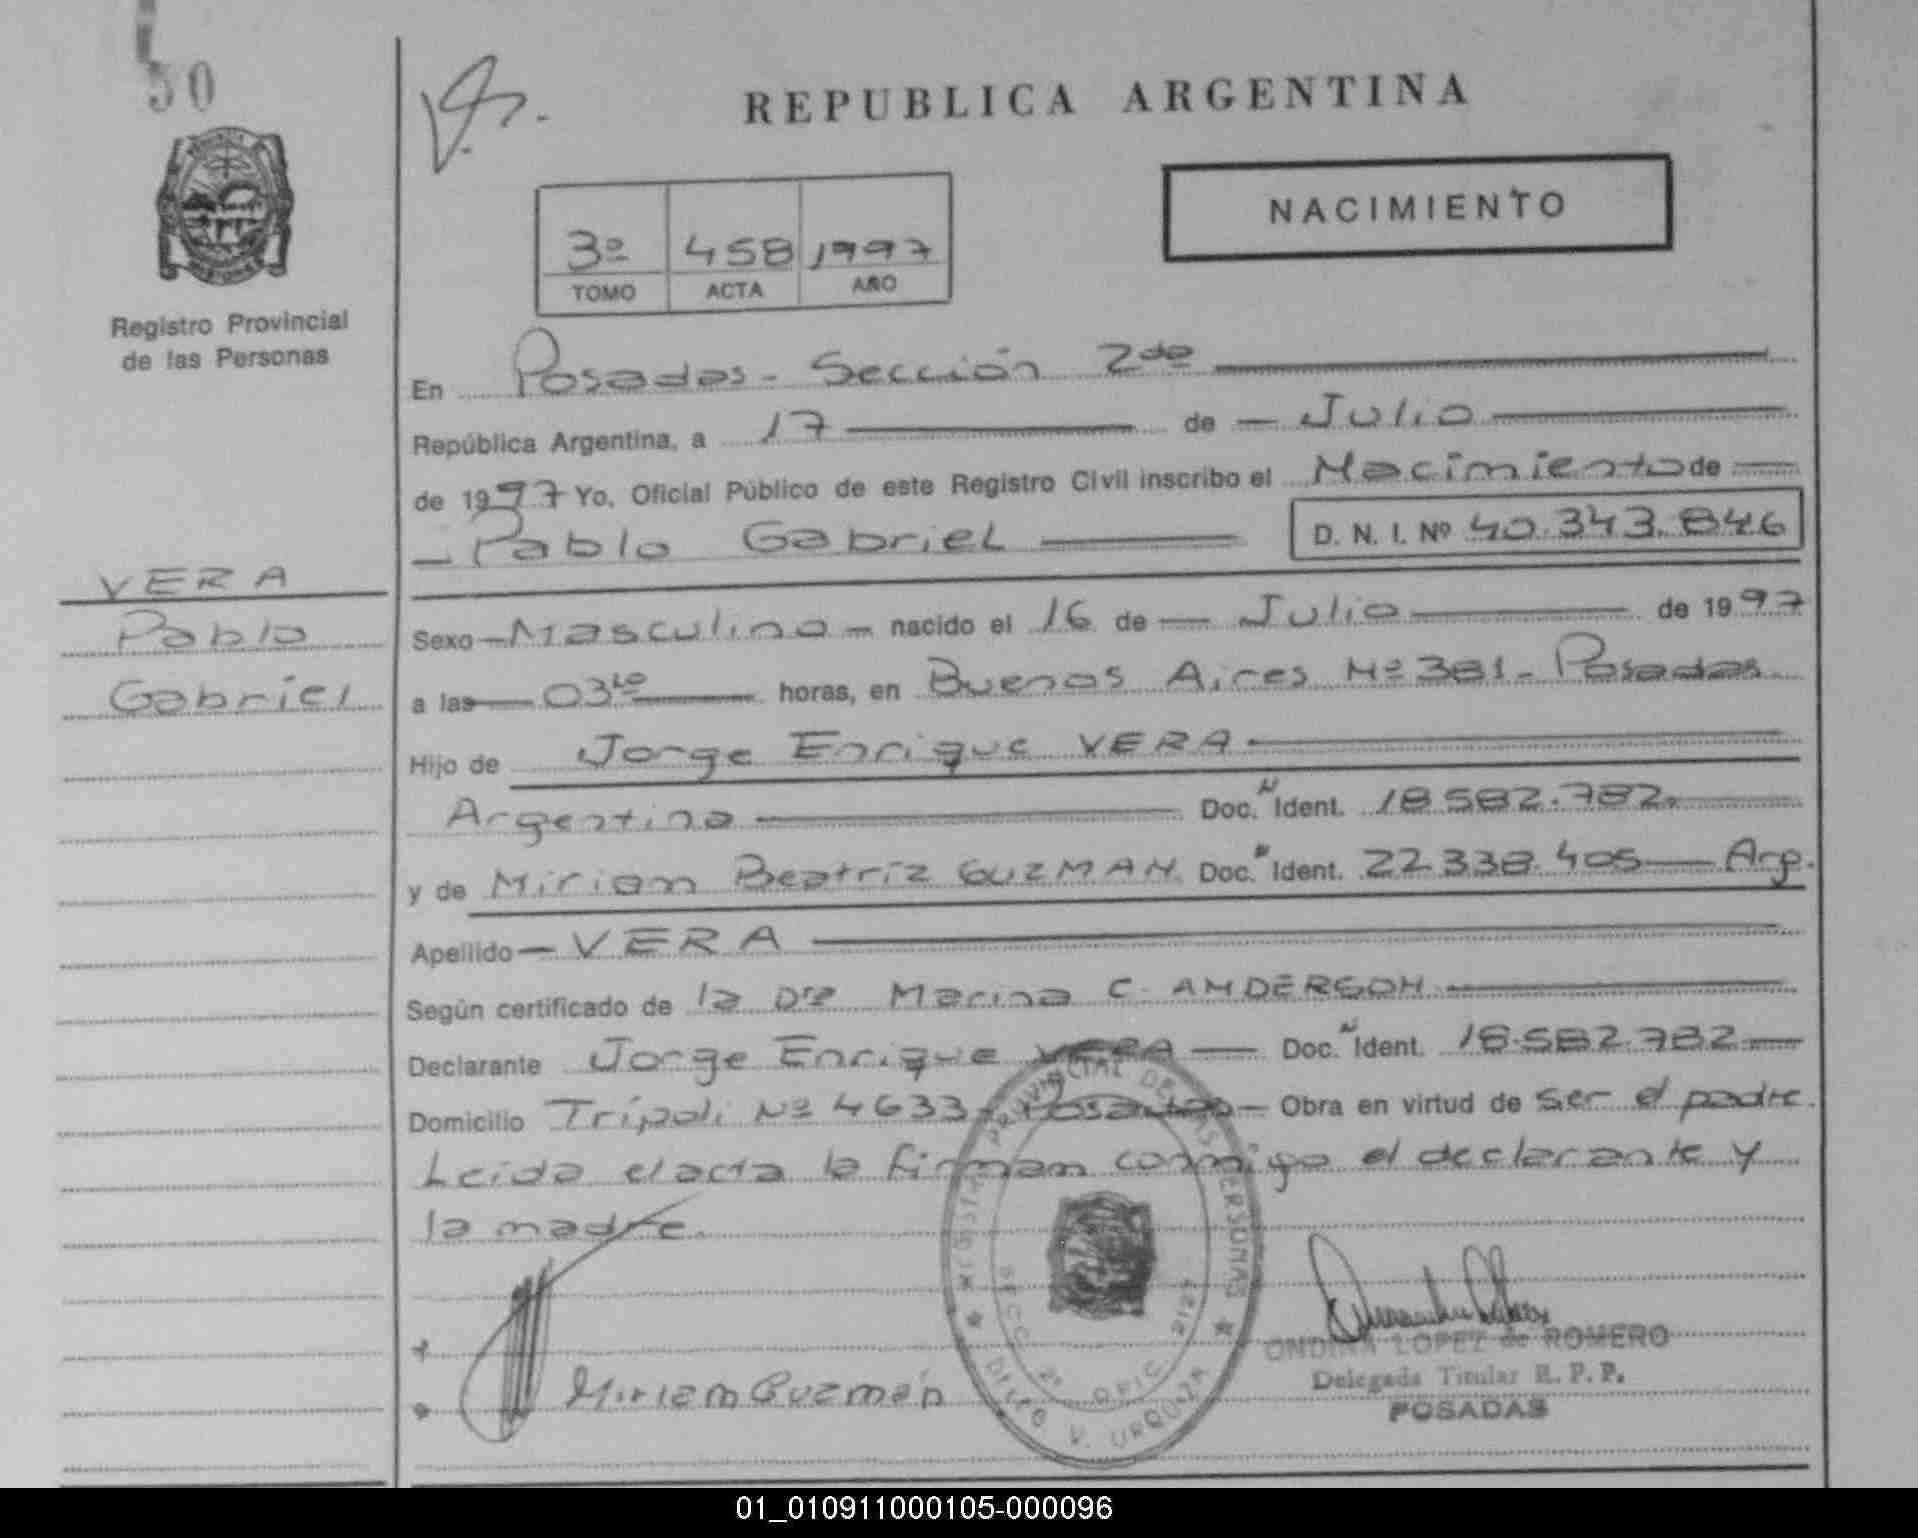 50
REPUBLICA ARGENTINA
NACIMIENTO
3º 458 1997
TOMO ACTA AÑO
Registro Provincial
de las Personas
En Posadas - Sección 2da
República Argentina, a 17 de Julio
de 1997 Yo, Oficial Público de este Registro Civil inscribo el Nacimiento de
Pablo Gabriel D. N. I. Nº 40.343.846
VERA
Pablo
Gabriel
Sexo Masculino nacido el 16 de Julio de 1997
a las 03 horas, en Buenos Aires Nº 381 - Posadas
Hijo de Jorge Enrique VERA
Argentina Doc. N Ident. 18.582.782.
y de Miriam Beatríz GUZMAN Doc. Ident. 22.338.405 Arg.
Apellido VERA
Según certificado de la Dra Marina C. ANDERSON
Declarante Jorge Enrique VERA Doc. N Ident. 18.582.782
Domicilio Trípoli Nº 4633 - Posadas Obra en virtud de ser el padre.
Leida el acta la firman conmigo el declarante y
la madre.
Miriam Guzmán
REGISTRO PROVINCIAL DE LAS PERSONAS
SECC. 2ª OFIC. 2127
DELEG. V. URQUIZA
ONDINA LOPEZ de ROMERO
Delegada Titular R. P. P.
POSADAS
01_010911000105-000096